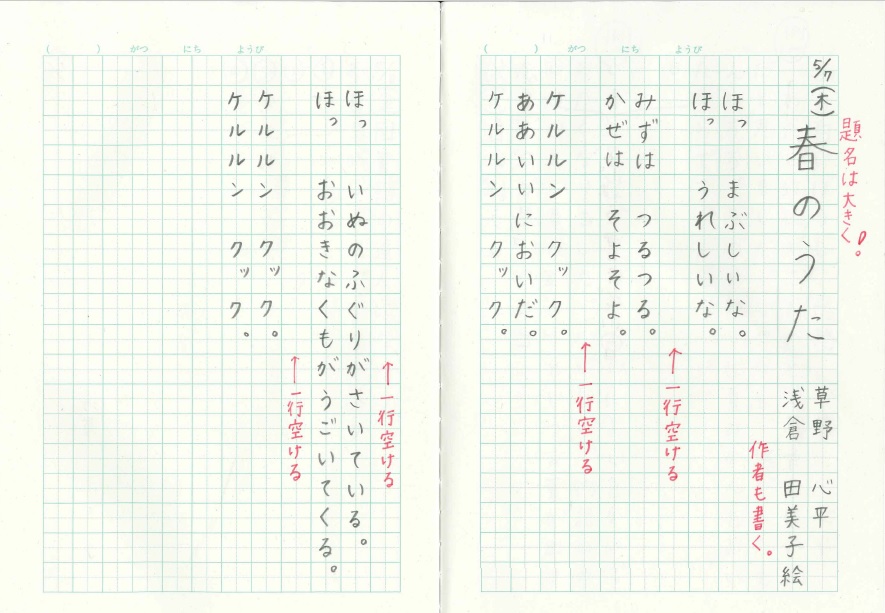 (　　) がつ　にち　ようび
題名は大きく!
5/7(木)
春のうた
草野　心平
浅倉　田美子絵
作者も書く。
ほっ　まぶしいな。
ほっ　うれしいな。
↑一行空ける
みずは　つるつる。
かぜは　そよそよ。
↑一行空ける
ケルルン　クック。
ああいいにおいだ。
ケルルン　クック。
(　　) がつ　にち　ようび
↑一行空ける
ほっ　いぬのふぐりがさいている。
ほっ　おおきなくもがうごいてくる。
↑一行空ける
ケルルン　クック。
ケルルン　クック。